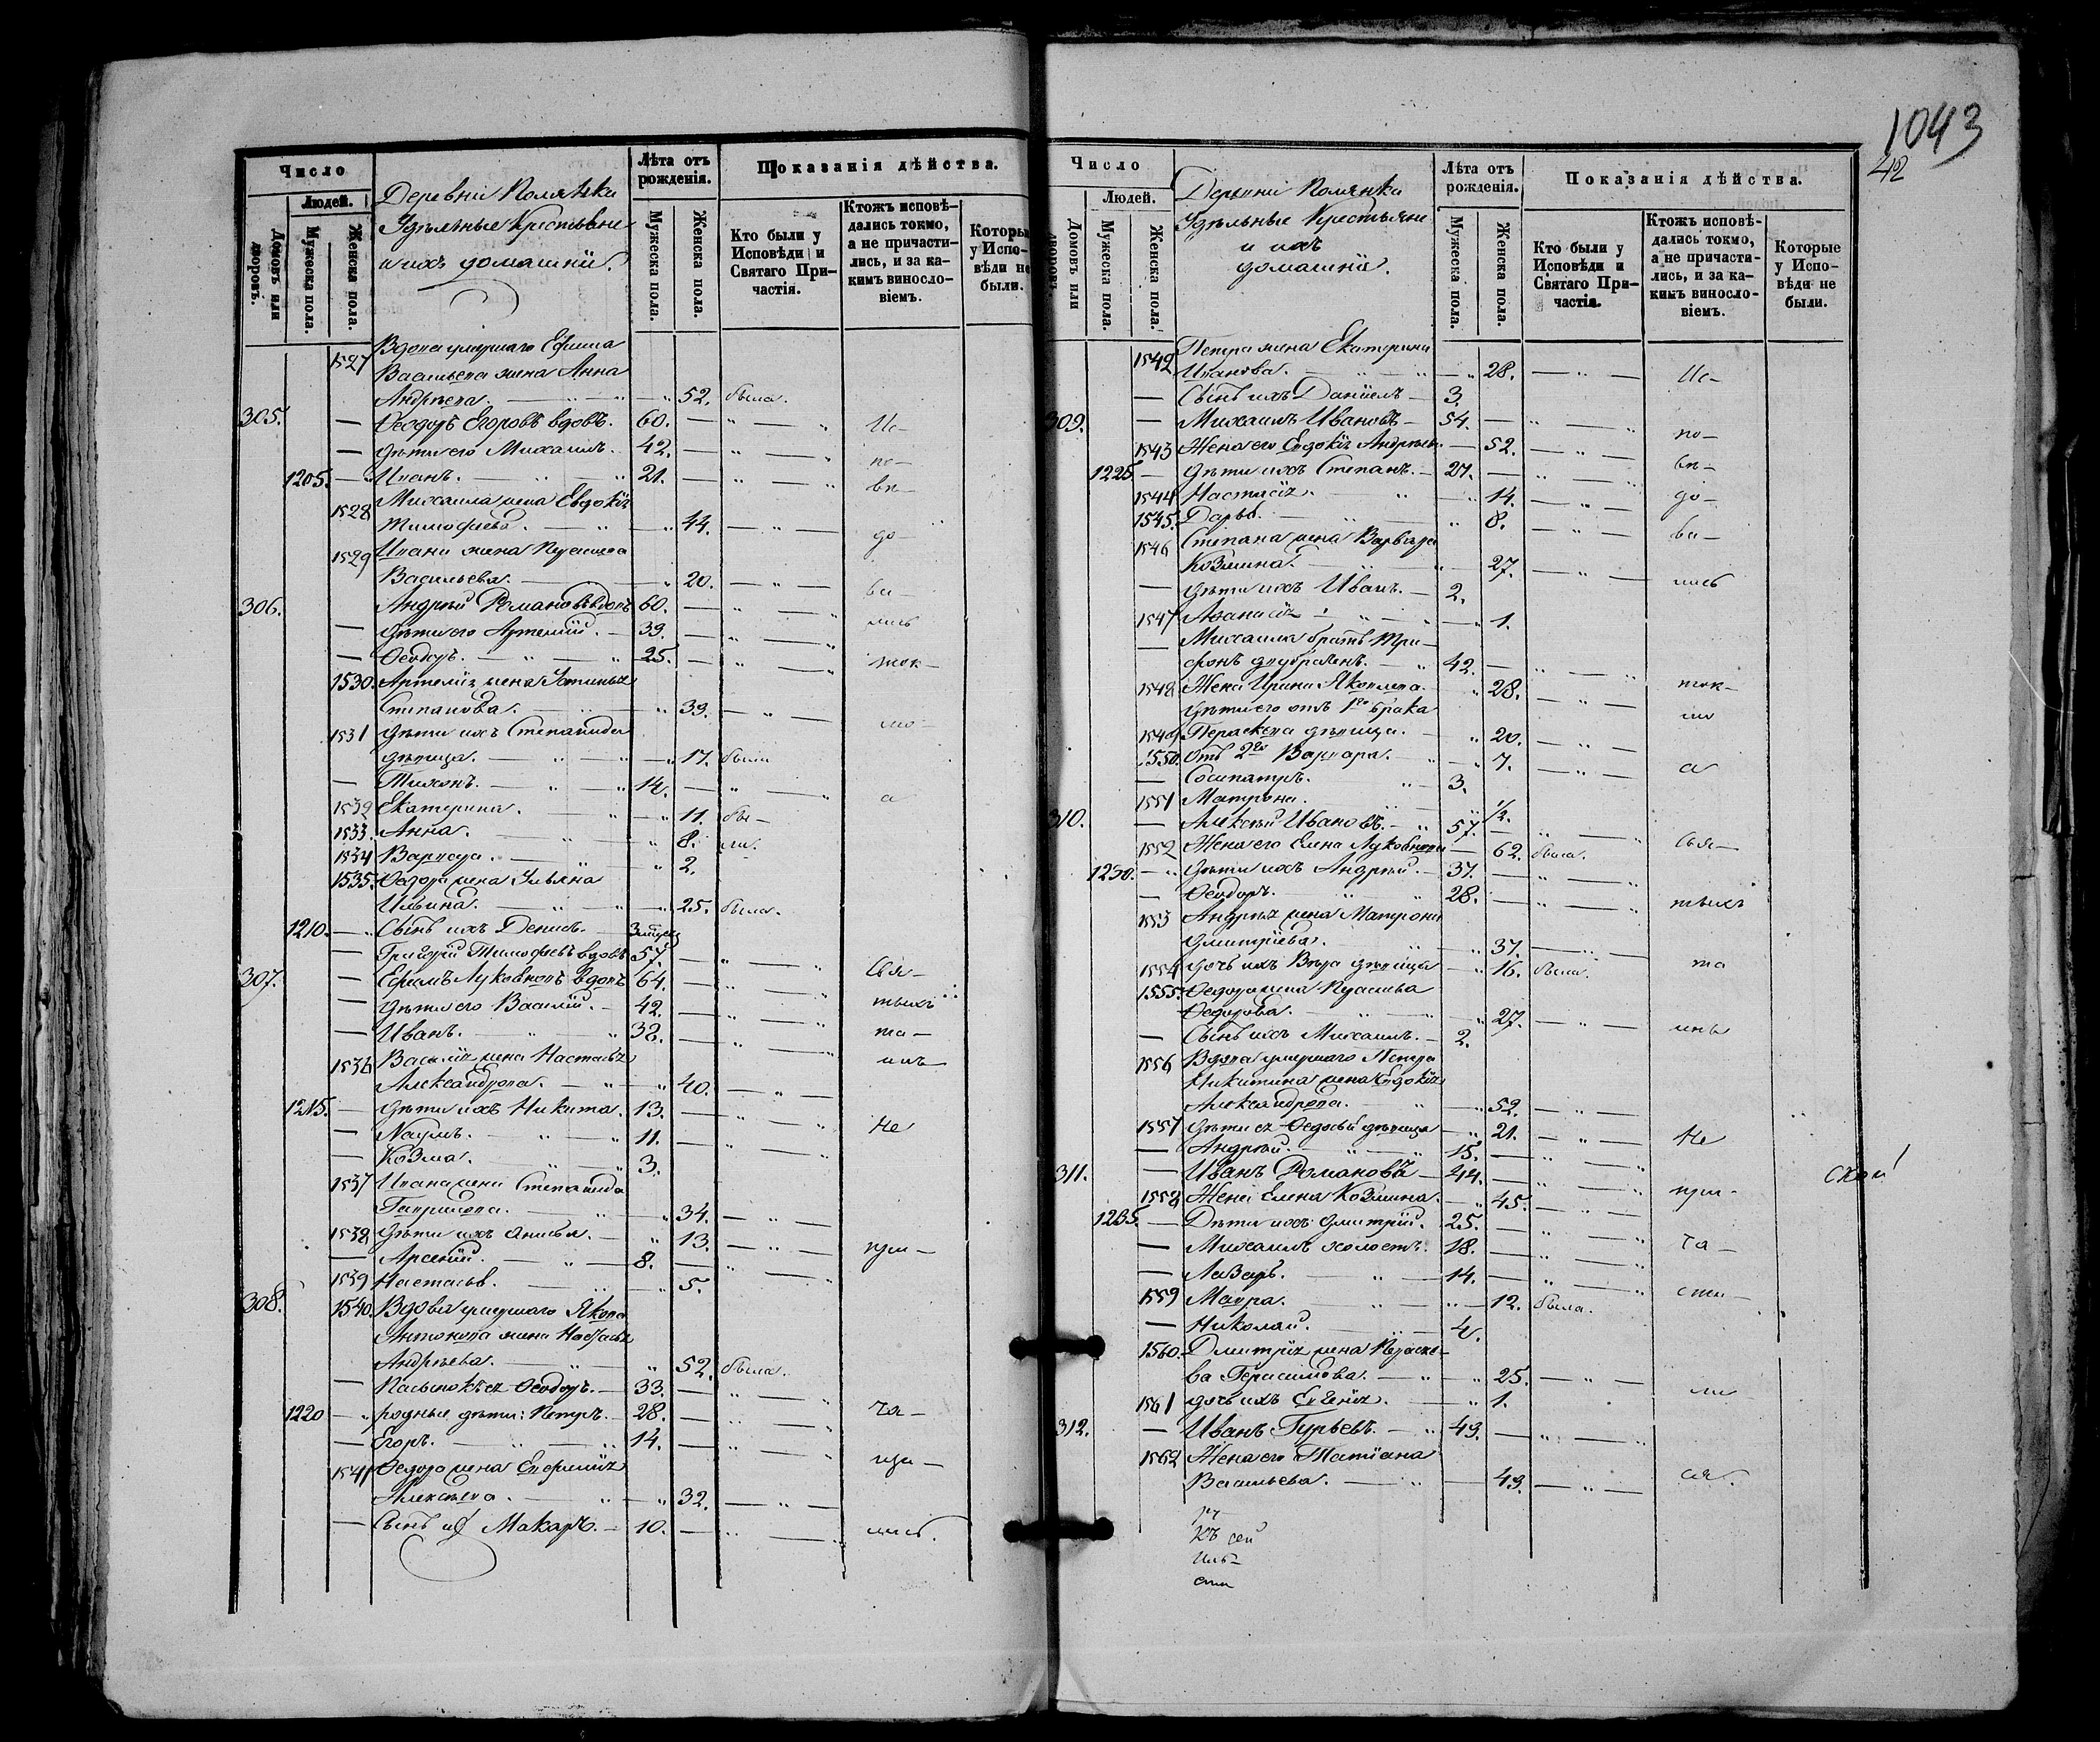 1043
42
Число
Людей.
Домовъ или дворовъ.
Мужеска пола.
Женска пола.
Деревни Полянки
Удѣльные Крестьяне
и ихъ домашніи.
Лѣта отъ рожденія.
Мужеска пола.
Женска пола.
Показанія дѣйства.
Кто были у Исповѣди и Святаго Причастія.
Ктожъ исповѣ-
дались токмо,
а не причасти-
лись, и за ка-
кимъ винносло-
віемъ.
Которые у Испо-
вѣди не были.
1527 Вдова умершаго Ефима
Васильева жена Анна
Андреева. 52. была.
305. Ѳеодоръ Егоровъ вдовъ. 60. Ис-
дѣти его Михаилъ. 42. по-
1205. Иванъ. 21. вѣ-
1528 Михаила жена Евдокія
Тимофеева. 44. до-
1529 Ивана жена
Васильева. 20. ва-
306. Андрей Романовъ вдовъ 60.
дѣти его Артемій. 39. лись
Ѳеодоръ. 25. ток-
1530. Артемія жена Устинья
Степанова. 39.
1531 дѣти ихъ Степанида
дѣвица. 17. были
Тихонъ. 14. а
1532 Екатерина. 11. бы-
1533. Анна. 8. ли.
1534 Варвара. 2.
1535. Ѳеодора жена Ульяна
Ильина. 25. была.
1210. Сынъ ихъ Денисъ. 3
Григорій Тимофеевъ вдовъ 57.
307. Ефимъ Луковновъ вдовъ 64. Свя-
дѣти его Василій. 42. тыхъ
Иванъ. 32. та-
1536 Василія жена Настасья
Александрова. 40. инъ
1215. дѣти ихъ Никита. 13.
Наумъ. 11. Не
Козма. 3.
1537 Ивана жена Степанида
Гаврилова. 34.
1538 дѣти ихъ Анисья. 13. при-
Арсеній. 8.
1539 Настасья. 5.
308. 1540. Вдова умершаго Якова
Антонова жена Настасья
Андреева. 52. была.
Пасынокъ ея Ѳеодоръ. 33.
1220 родные дѣти: Петръ. 28. ча-
Егоръ. 14.
1541 Ѳеодора жена Евфимія
Алексѣева. 32.
Сынъ их Макаръ. 10. лись.
Число
Людей.
Домовъ или дворовъ.
Мужеска пола.
Женска пола.
Деревни Полянки
Удѣльные Крестьяне
и ихъ
домашніи.
Лѣта отъ рожденія.
Мужеска пола.
Женска пола.
Показанія дѣйства.
Кто были у Исповѣди и Святаго Причастія.
Ктожъ исповѣ-
дались токмо,
а не причасти-
лись, и за ка-
кимъ винносло-
віемъ.
Которые у Испо-
вѣди не были.
1542 Петра жена Екатерина
Иванова. 28. Ис-
Сынъ ихъ Даніилъ 3.
309. Михаилъ Ивановъ 54. по-
1543 Жена его Евдокія Андреев. 52.
1225 дѣти ихъ Степанъ. 27. вѣ-
1544 Настасія. 14. до-
1545. Дарья. 8.
1546 Степана жена Варвара ва-
Козмина. 27.
дѣти ихъ Иванъ. 2. лись
1547 Аѳанасія 1.
Михаила братъ Три-
фонъ двубраченъ. 42.
1548 Жена Ирина Яковлева. 28. ток-
дѣти его отъ 1го брака мо
1549 Параскева дѣвица. 20.
1550. Отъ 2го Варвара. 7. а
Сосипатръ. 3.
1551 Матрона. 1/2.
310. Алексѣй Ивановъ. 57.
1552 Жена его Елена Луковнова 62. была. свя-
1230. дѣти ихъ Андрей. 37.
Ѳеодоръ. 28. тыхъ
1553 Андрея жена Матрона
Дмитріева. 37.
1554 дочь ихъ Вѣра дѣвица 16. была. та
1555. Ѳеодора жена
Ѳедорова. 27. инъ
Сынъ ихъ Михаилъ. 2.
1556 Вдова умершаго Петра
Никитина жена Евдокія
Александрова. 52.
1557 дѣти ея Ѳедосья дѣвица 21. Не
Андрей. 15.
311. Иванъ Романовъ 44.
1558 Жена Елена Козмина. 45. при-
1235. Дѣти ихъ Дмитрій. 25.
Михаилъ холостъ. 18. ча-
Лазарь. 14.
1559 Мавра. 12. была. сти-
Николай. 4.
1560. Дмитрія жена Параске-
ва Герасимова. 25. ли
1561 дочь ихъ Евгенія. 1.
312. Иванъ Гурьевъ. 49.
1562 Жена его Татіана
Васильева. 49. ся.
къ сей